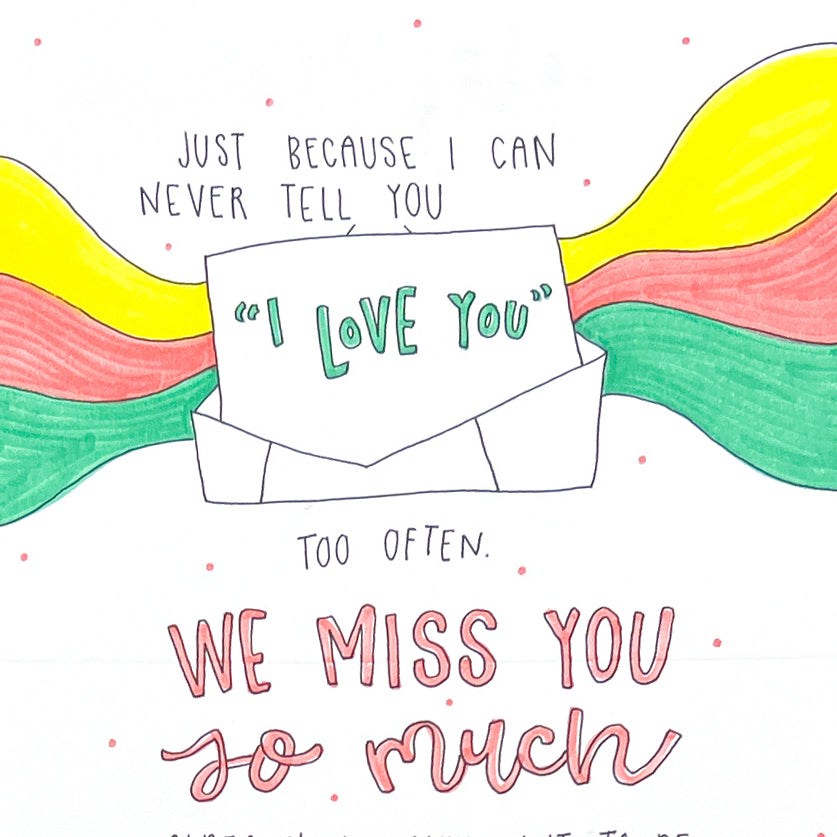 JUST BECAUSE I CAN
NEVER TELL YOU
“I LOVE YOU”
TOO OFTEN.
WE MISS YOU
so much